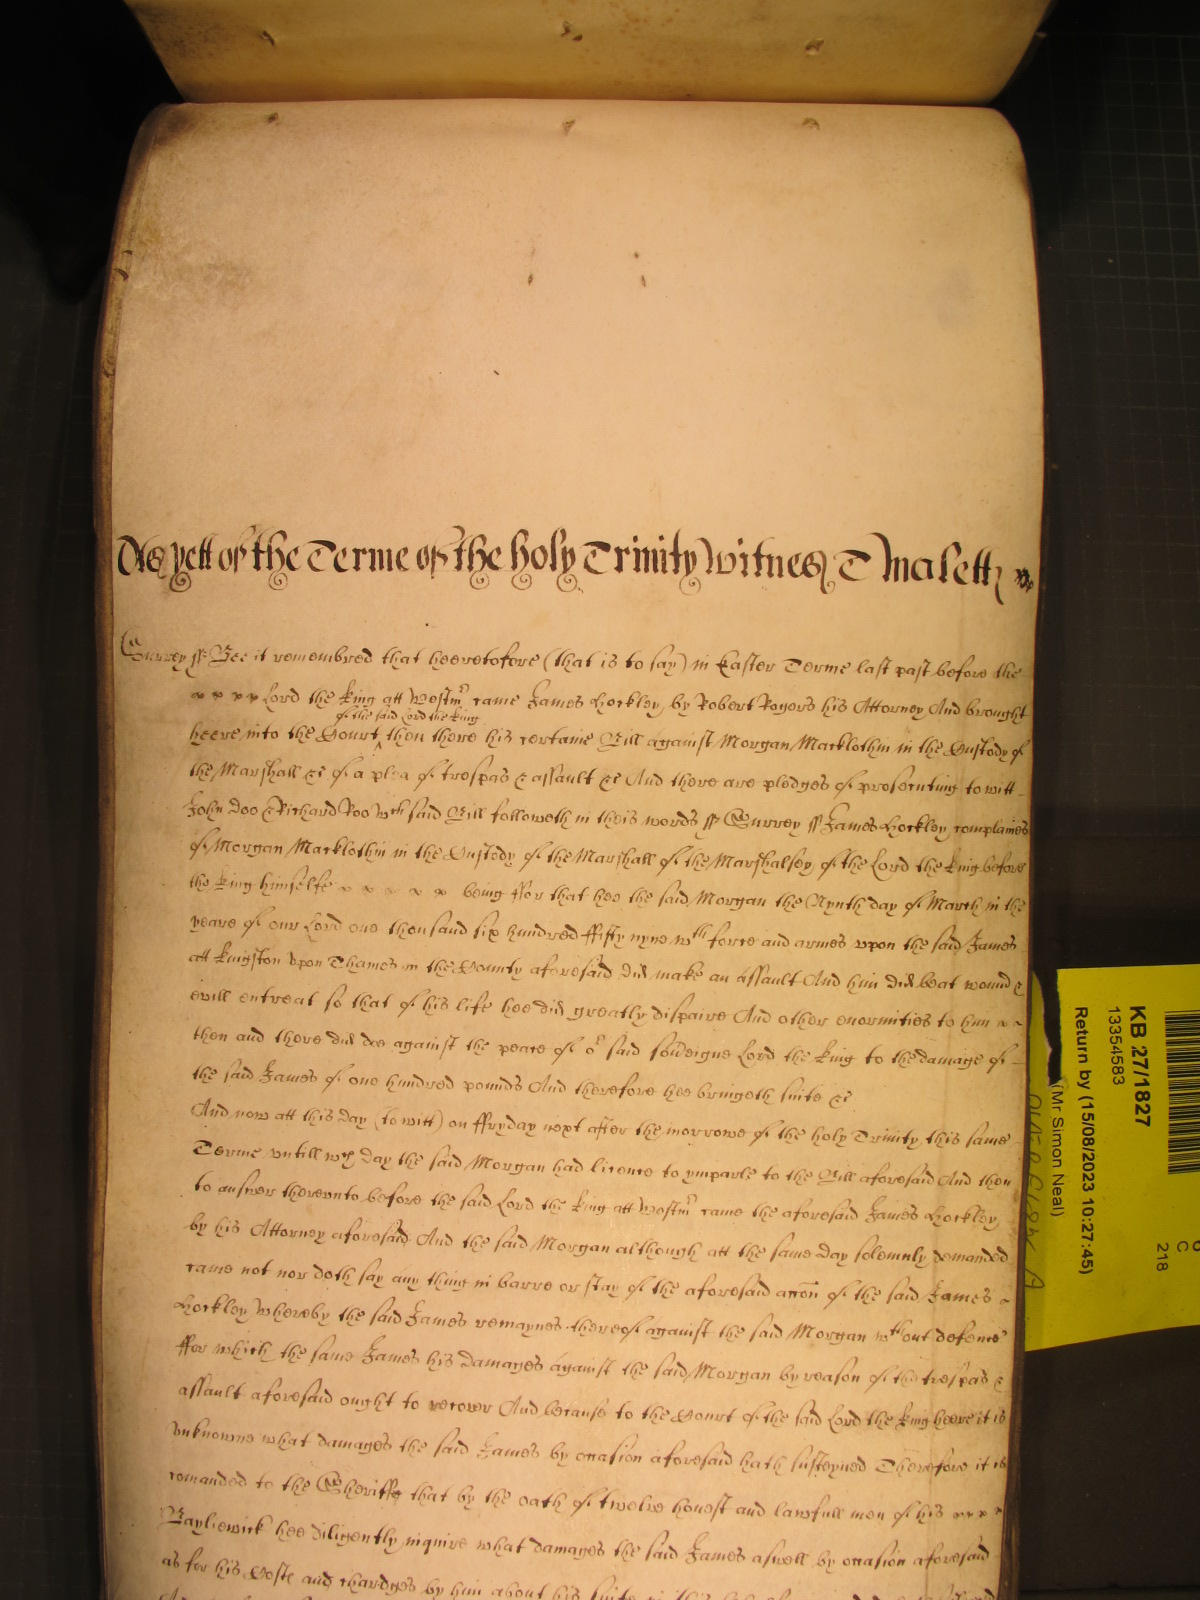 As yett of the Terme of the holy Trinity Witnes T Malett
Surrey ss Bee it remembred that heeretofore (that is to say) in Easter Terme last past before the
Lord the King att Westmr came James Hockley by Robert Rogers his Attorney And brought
of the said Lord the King
heere into the Court then there his certaine Bill against Morgan Macklothin in the Custody of
the Marshall &c of a plea of trespas & assault &c And there are pledges of prosecuting to witt
John Doo & Richard Roo Wch said Bill followeth in theis words ss Surrey ss James Hockley complaines
of Morgan Macklothin in the Custody of the Marshall of the Marshalsey of the Lord the King before
the King himselfe being ffor that hee the said Morgan the Nynth day of March in the
yeare of our Lord one thousand six hundred ffifty nyne wth force and armes upon the said James
att Kingston upon Thames in the County aforesaid did make an assault And him did beat wound &
evill entreat so that of his life hee did greatly dispaire And other enormities to him
then and there did doe against the peace of or said soveigne Lord the King to the damage of
the said James of one hundred pounds And therefore hee bringeth suite &c
And now att this day (to witt) on ffryday next after the morrowe of the holy Trinity this same
Terme untill wch day the said Morgan had licence to ymparle to the Bill aforesaid And then
to answer thereunto before the said Lord the King att Westmr came the aforesaid James Hockley
by his Attorney aforesaid And the said Morgan although att the same day solemnly demanded
came not nor doth say any thing in barre or stay of the aforesaid accon of the said James
Hockley Whereby the said James remaynes thereof against the said Morgan wthout defence
ffor which the same James his damages against the said Morgan by reason of the trespas &
assault aforesaid ought to recover And because to the Court of the said Lord the King heere it is
unknowne what damages the said James by occasion aforesaid hath susteyned Therefore it is
comanded to the Sheriffe that by the oath of twelve honest and lawfull men of his
Bayliewick hee diligently inquire what damages the said James aswell by occasion aforesaid
as for his Coste and chardges by him about his suite in this
KB 27/1827
13354583
Return by (15/08/2023 10:27:45)
(Mr Simon Neal)
C
218